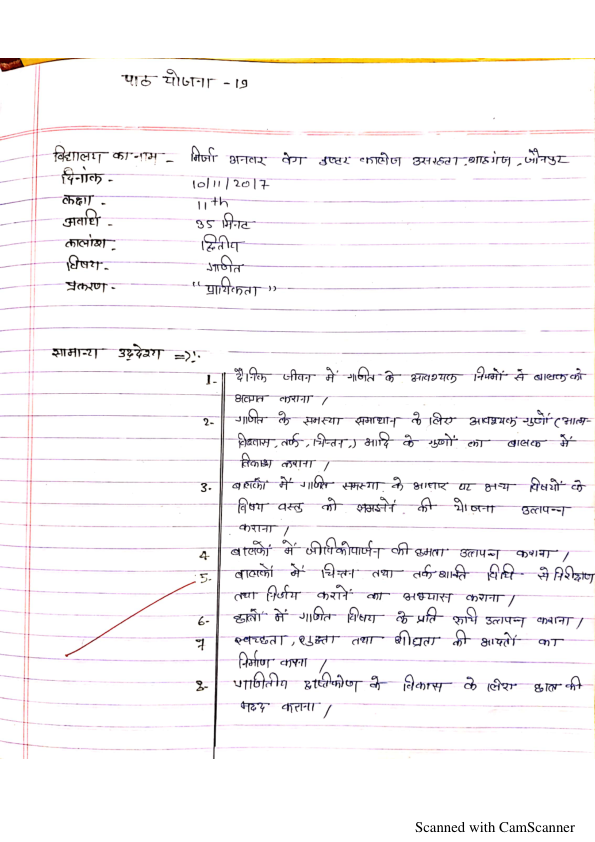 पाठ योजना - 19
विद्यालय का नाम - मिर्जा अनवर बेग इण्टर कालेज उसरहटा, शाहगंज, जौनपुर
दिनांक - 10/11/2017
कक्षा - 11th
अवधि - 35 मिनट
कालांश - द्वितीय
विषय - गणित
प्रकरण - " प्रायिकता "
सामान्य उद्देश्य =>:-
1- दैनिक जीवन में गणित के आवश्यक नियमों से बालक को
अवगत कराना /
2- गणित के समस्या समाधान के लिए आवश्यक गुणों (आत्म-
विश्वास, तर्क, चिन्तन,) आदि के गुणों का बालक में
विकास कराना /
3- बालकों में गणित समस्या के आधार पर अन्य विषयों के
विषय वस्तु को समझने की योजना उत्पन्न
कराना /
4 बालकों में जीविकोपार्जन की क्षमता उत्पन्न कराना /
5- बालकों में चिन्तन तथा तर्कशक्ति विधि से निरीक्षण
तथा निर्णय कराने का अभ्यास कराना /
6- छात्रों में गणित विषय के प्रति रुचि उत्पन्न कराना /
7 स्वच्छता, शुद्धता तथा शीघ्रता की आदतों का
निर्माण करना /
8- गणितीय दृष्टिकोण के विकास के लिए छात्र की
मदद कराना /
Scanned with CamScanner